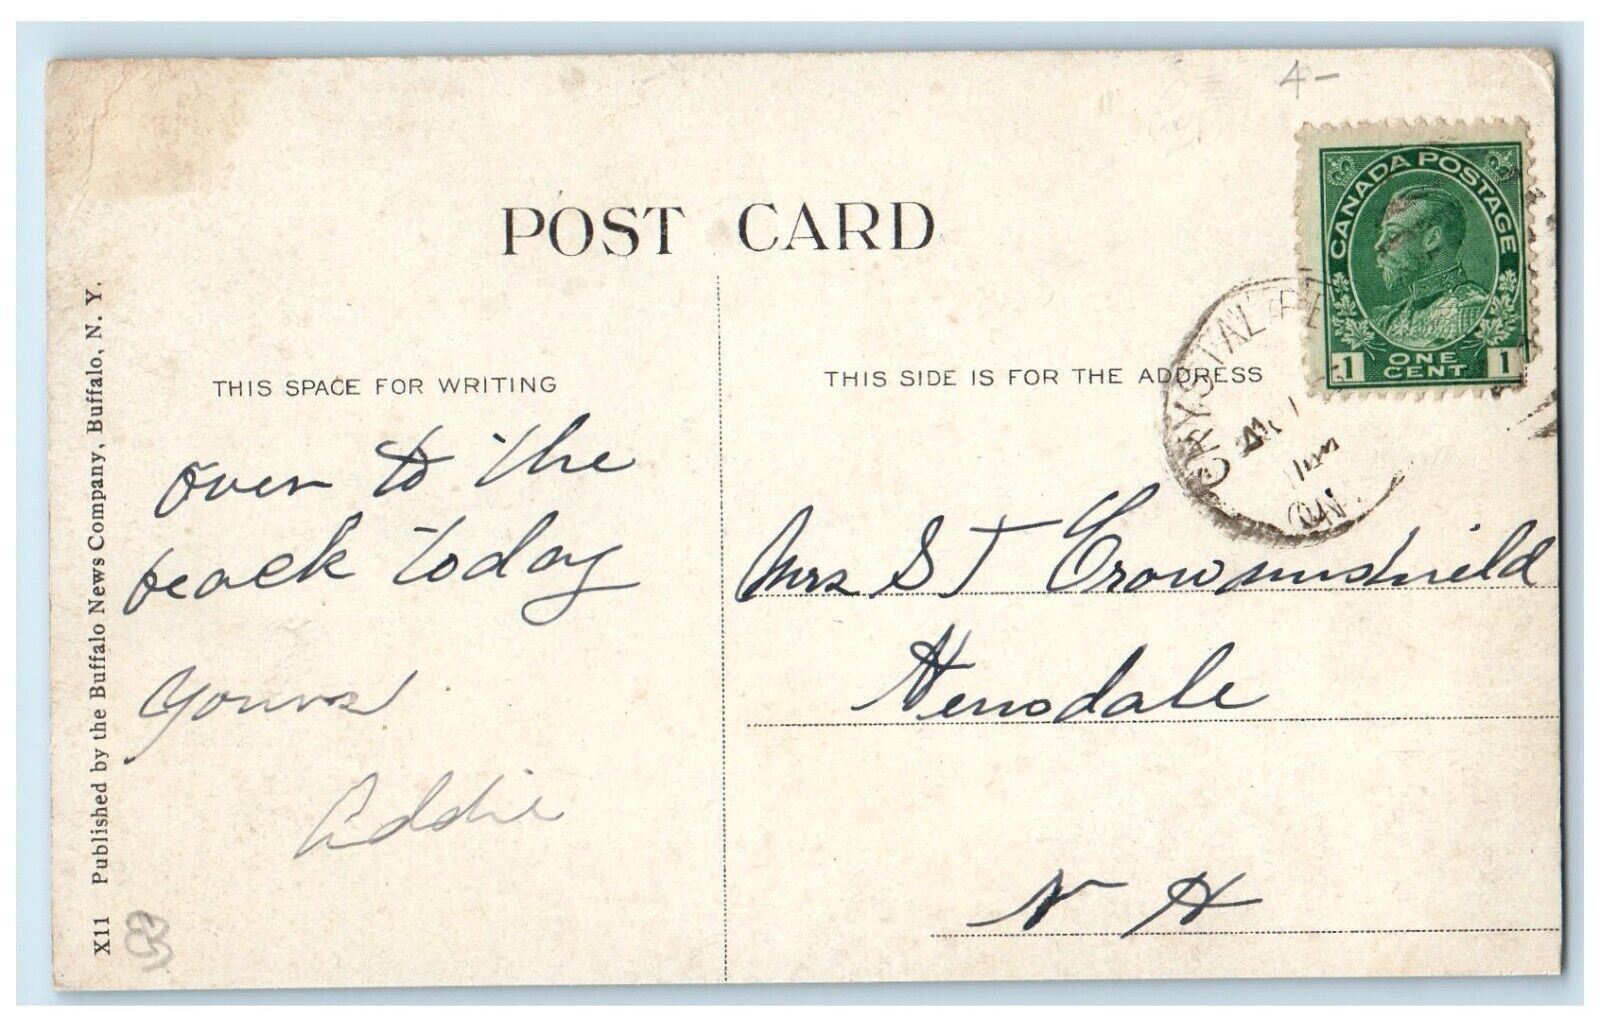 4-
POST CARD
CANADA POSTAGE
1 ONE CENT 1
CRYSTAL
ON
THIS SPACE FOR WRITING
THIS SIDE IS FOR THE ADDRESS
over to the
beach today
Yours
Addie
Mrs S T Crowninshield
N H
X11 Published by the Buffalo News Company, Buffalo, N. Y.